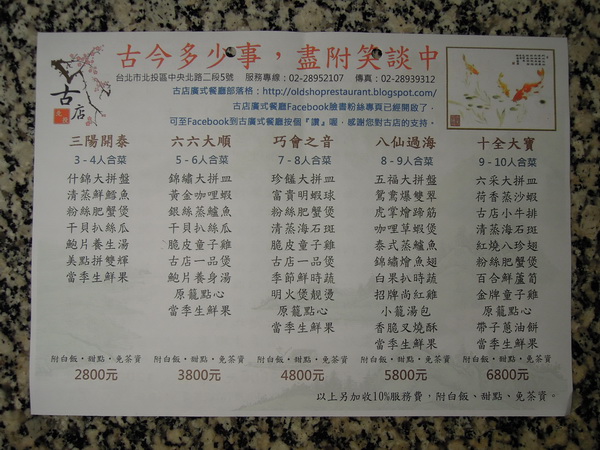 古今多少事，盡附笑談中
古店
台北市北投區中央北路二段5號　服務專線：02-28952107　傳真：02-28939312
古店廣式餐廳部落格：http://oldshoprestaurant.blogspot.com/
古店廣式餐廳Facebook臉書粉絲專頁已經開放了，
可至Facebook到古廣式餐廳按個『讚』喔，感謝您對古店的支持。
三陽開泰
3－4人合菜
什錦大拼盤
清蒸鮮鱈魚
粉絲肥蟹煲
干貝扒絲瓜
鮑片養生湯
美點拼雙輝
當季生鮮果
附白飯‧甜點‧免茶資
2800元
六六大順
5－6人合菜
錦繡大拼皿
黃金咖哩蝦
銀絲蒸鱸魚
干貝扒絲瓜
脆皮童子雞
古店一品煲
鮑片養身湯
原籠點心
當季生鮮果
附白飯‧甜點‧免茶資
3800元
巧會之音
7－8人合菜
珍饈大拼皿
富貴明蝦球
粉絲肥蟹煲
清蒸海石斑
脆皮童子雞
古店一品煲
季節鮮時蔬
明火煲靚燙
原籠點心
當季生鮮果
附白飯‧甜點‧免茶資
4800元
八仙過海
8－9人合菜
五福大拼盤
鴛鴦爆雙翠
虎掌燴蹄筋
咖哩草蝦煲
泰式蒸鱸魚
錦繡燴魚翅
白果扒時蔬
招牌尚紅雞
小籠湯包
香脆叉燒酥
當季生鮮果
附白飯‧甜點‧免茶資
5800元
十全大寶
9－10人合菜
六采大拼皿
荷香蒸沙蝦
古店小牛排
清蒸海石斑
紅燒八珍翅
粉絲肥蟹煲
百合鮮蘆筍
金牌童子雞
原籠點心
帶子蔥油餅
當季生鮮果
附白飯‧甜點‧免茶資
6800元
以上另加收10%服務費，附白飯、甜點、免茶資。